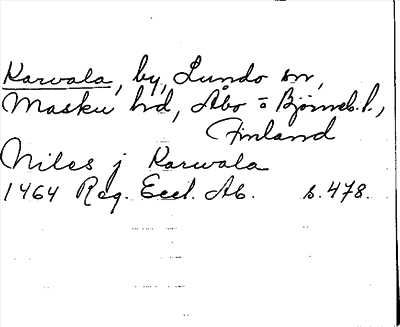 Karvala, by, Lundo sn,
Masku hd, Åbo o Björneb. l.,
Finland
Niles j Karwala
1464 Reg. Eccl. Ab. s. 478.